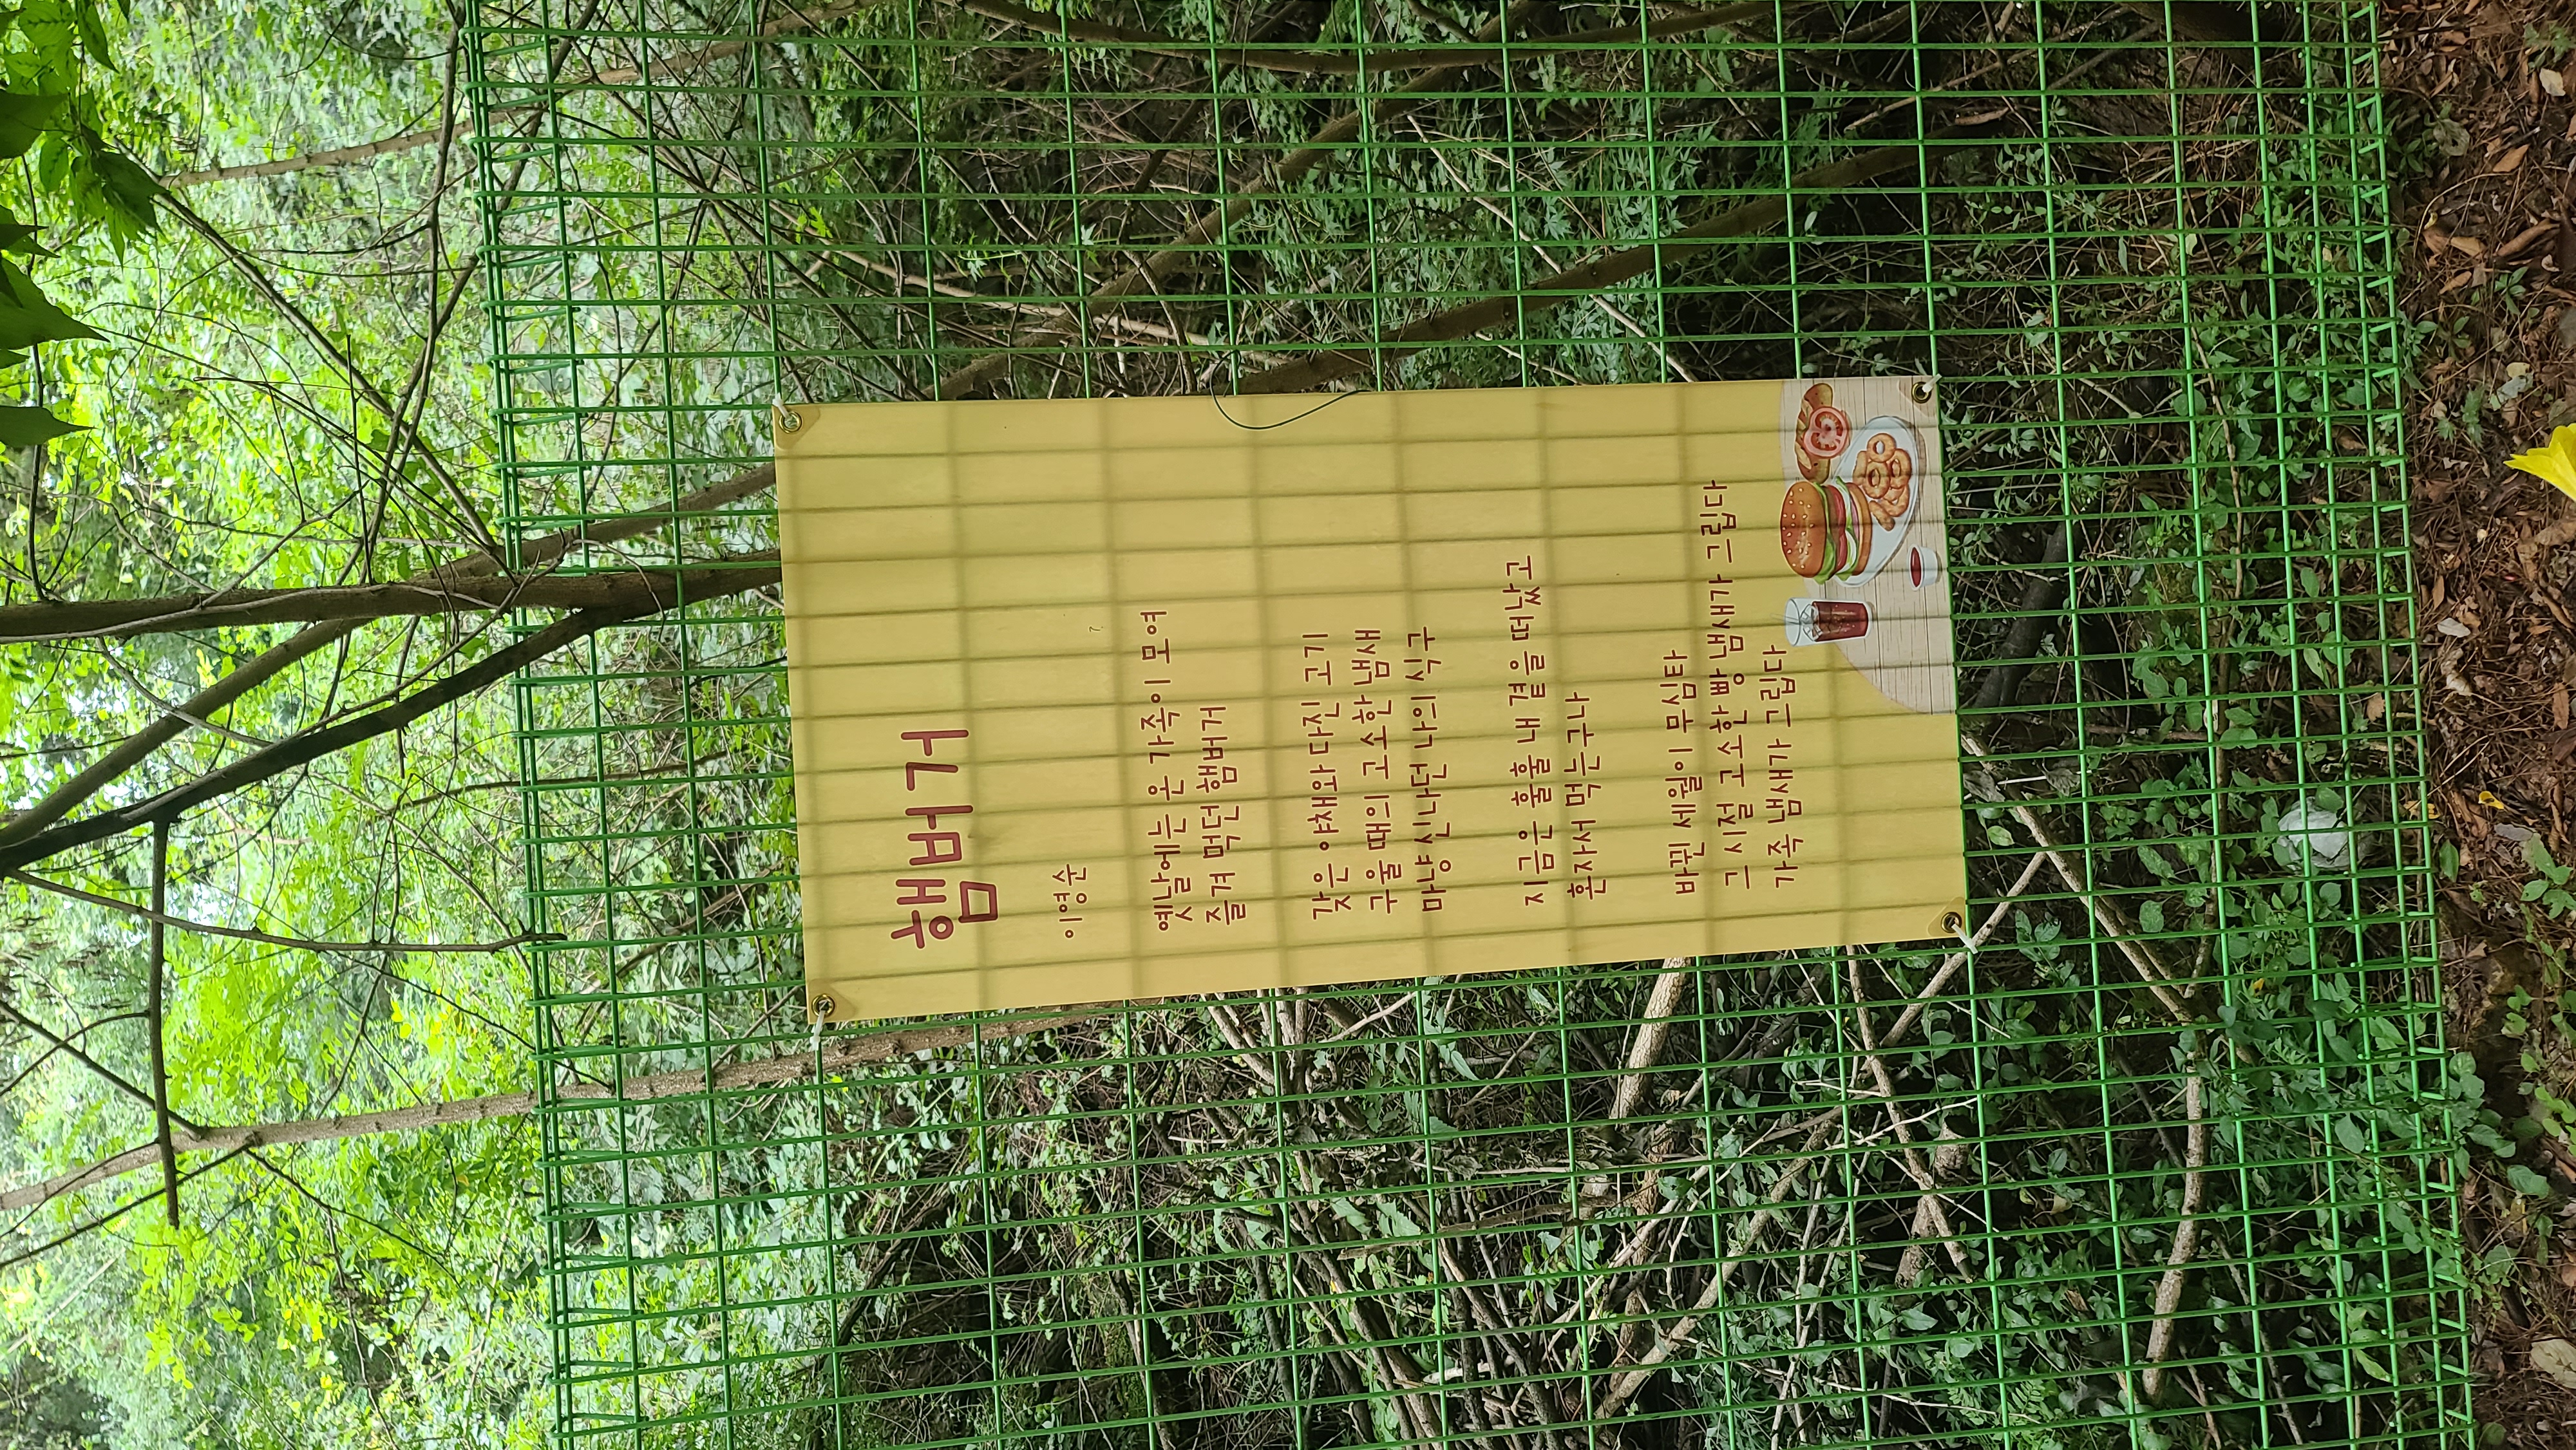 햄버거
이영순
옛날에는 온 가족이 모여
즐겨 먹던 햄버거
갖은 야채와 다진 고기
구울 때의 고소한 냄새
마냥 신나던 나의 식구
지금은 훌훌 내 곁을 떠났고
혼자서 먹는구나
바뀐 세월이 무심타
그 시절 고소한 빵 냄새가 그립다
가족 냄새가 그립다